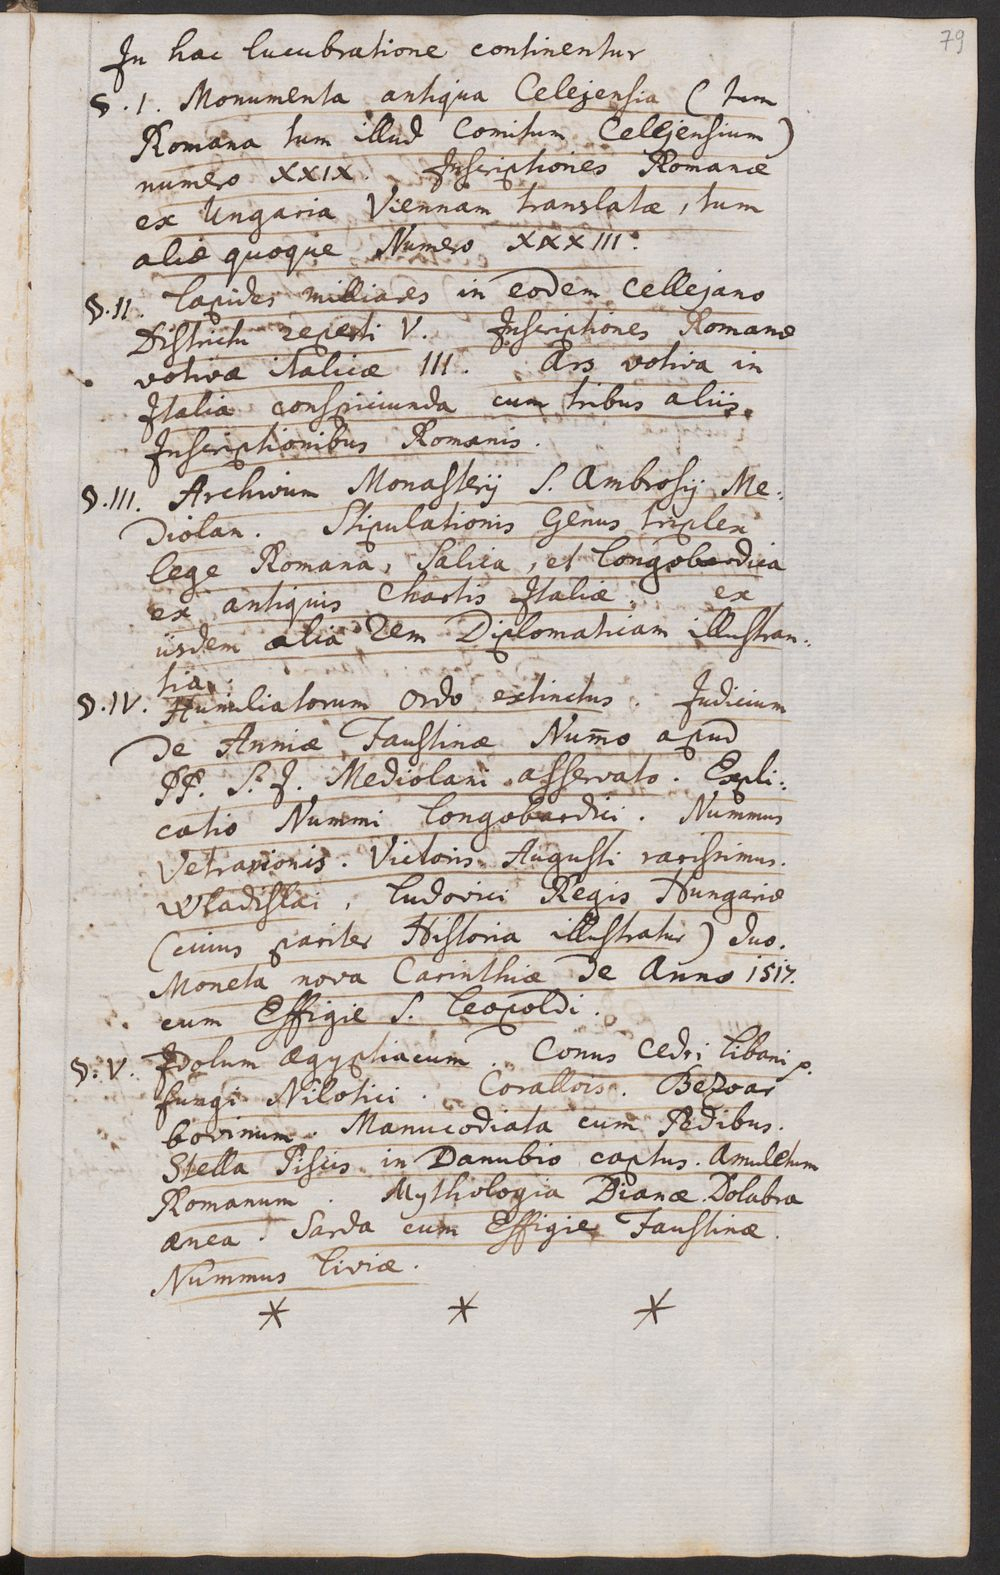 79
In hac lucubratione continentur
§. I. Monumenta antiqua Celejensia (tum
Romana tum illud Comitum Cellejensium)
numero XXIX. Inscriptiones Romanæ
ex Ungaria Viennam translatæ, tum
aliæ quoque Numero XXXIII.
§. II. Lapides milliares in eodem Cellejano
Districtu reperti V. Inscriptiones Romanæ
votivæ italicæ III. Ars votiva in
Italia conspiciunda cum tribus aliis
Inscriptionibus Romanis.
§. III. Archivum Monasterij S. Ambrosij Me:
diolan. Stipulationis Genus triplex
lege Romana, Salica, et Longobardica
ex antiquis Chartis Italiæ, ex
iisdem alia Rem Diplomaticam illustran:
tia.
§. IV. Humiliatorum Ordo extinctus. Judicium
de Anniæ Faustinæ Num̅o apud
PP. S. J. Mediolani asservato. Expli:
catio Nummi Longobardici. Nummus
Vetranionis. Victoris Augusti rarissimus.
Wladislai, Ludovici Regis Hungariæ
(cuius pariter Historia illustratur) duo.
Moneta nova Carinthiæ de Anno 1517.
cum Effigie S. Leopoldi.
§. V. Idolum Ægyptiacum. Conus Cedri Libani
fungi Nilotici. Corallois. Bezoar
bovinum. Manucodiata cum Pedibus.
Stella Piscis in Danubio captus. Amuletum
Romanum. Mythologia Dianæ. Dolabra
ænea. Sarda cum Effigie Faustinæ.
Nummus Liviæ.
* * *